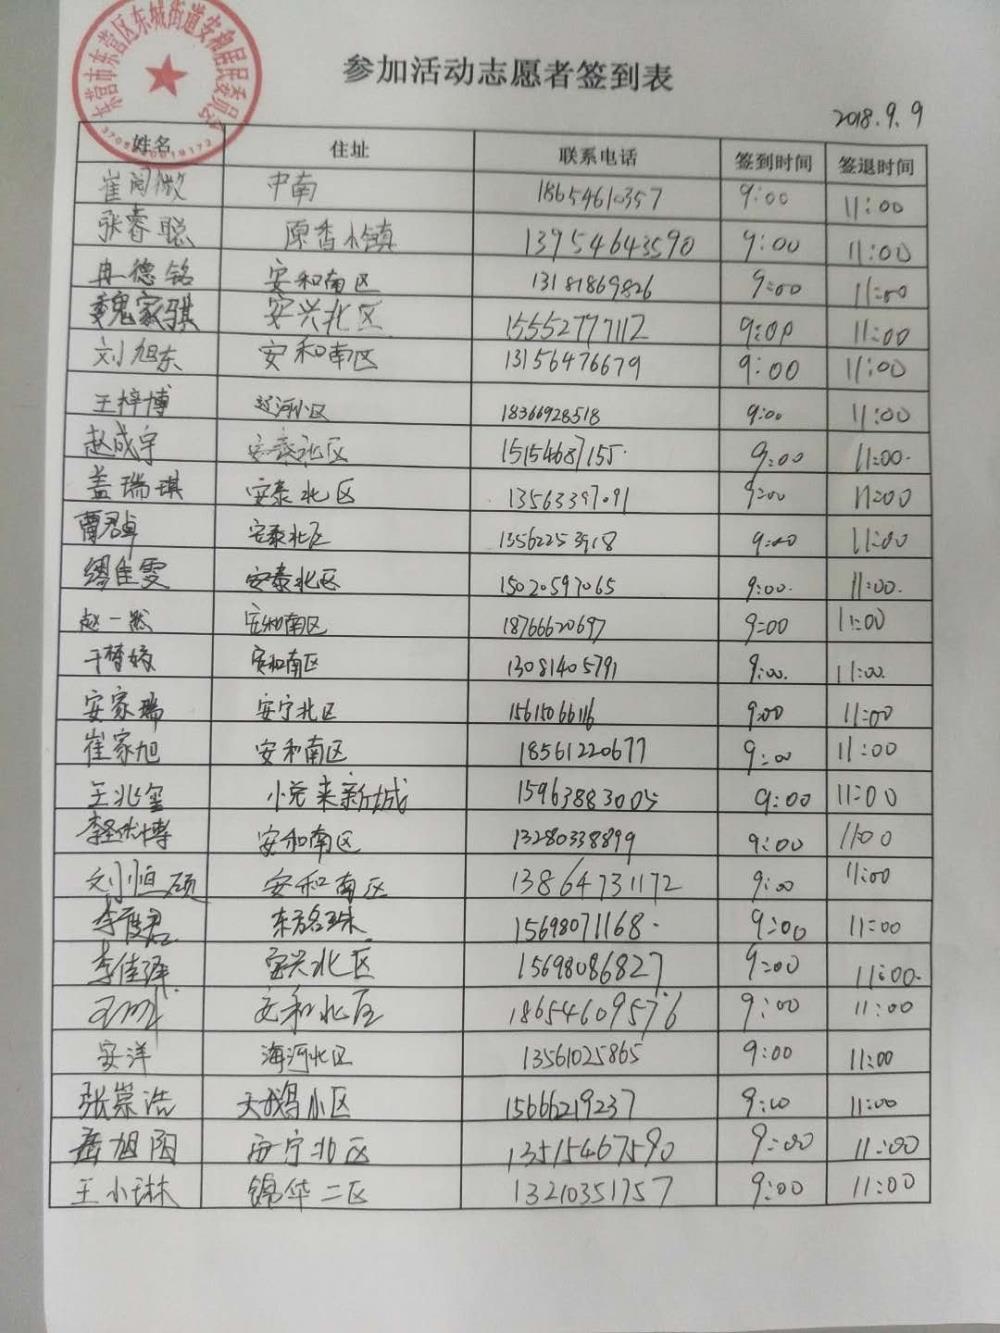 东营市东营区东城街道安和居民委员会
参加活动志愿者签到表
2018.9.9
姓名 住址 联系电话 签到时间 签退时间
崔 中南 18654610357 9:00 11:00
张睿聪 原香小镇 13954643590 9:00 11:00
冉德铭 安和南区 13181869826 9:00 11:00
魏家骐 安兴北区 15552777112 9:00 11:00
刘旭东 安和南区 13156476679 9:00 11:00
王梓博 辽河小区 18366928518 9:00 11:00
赵成宇 安泰北区 15154687155. 9:00 11:00.
盖瑞琪 安泰北区 13563397091 9:00 11:00
曹君卓 安泰北区 13562253918 9:00 11:00
缪佳雯 安泰北区 15020597065 9:00. 11:00.
赵一然 安和南区 18766620697 9:00 11:00
于梦姣 安和南区 13081405791 9:00. 11:00.
安家瑞 安宁北区 15615066116 9:00 11:00
崔家旭 安和南区 18561220677 9:00 11:00
王兆玺 悦来新城 15963883005 9:00 11:00
李 博 安和南区 13280338899 9:00 11:00
刘恒硕 安和南区 13864731172 9:00 11:00
李俊君 东方名珠 15698071168. 9:00 11:00
李佳泽 安兴北区 15698086827 9:00 11:00.
安和北区 18654609576 9:00 11:00
安洋 海河北区 13561025865 9:00 11:00
张崇浩 天鹅小区 15666219237 9:00 11:00
岳旭阳 西宁北区 13515467590 9:00 11:00
王小琳 锦华二区 13210351757 9:00 11:00